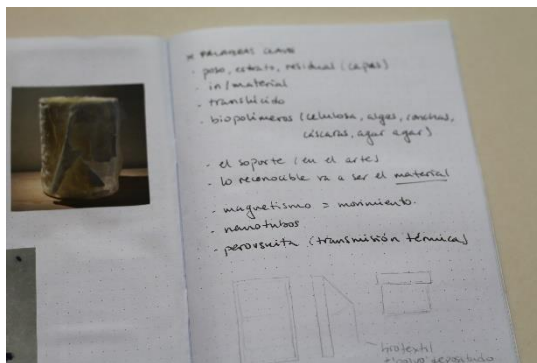 * PALABRAS CLAVE
· poso, estrato, residual (capas)
· in/material
· translúcido
· biopolímeros (celulosa, algas, conchas,
cáscaras, agar agar)
· el soporte (en el arte)
· lo reconocible va a ser el material
· magnetismo = movimiento.
· nanotubos
· perovsuita (transmisión térmica)
biotextil